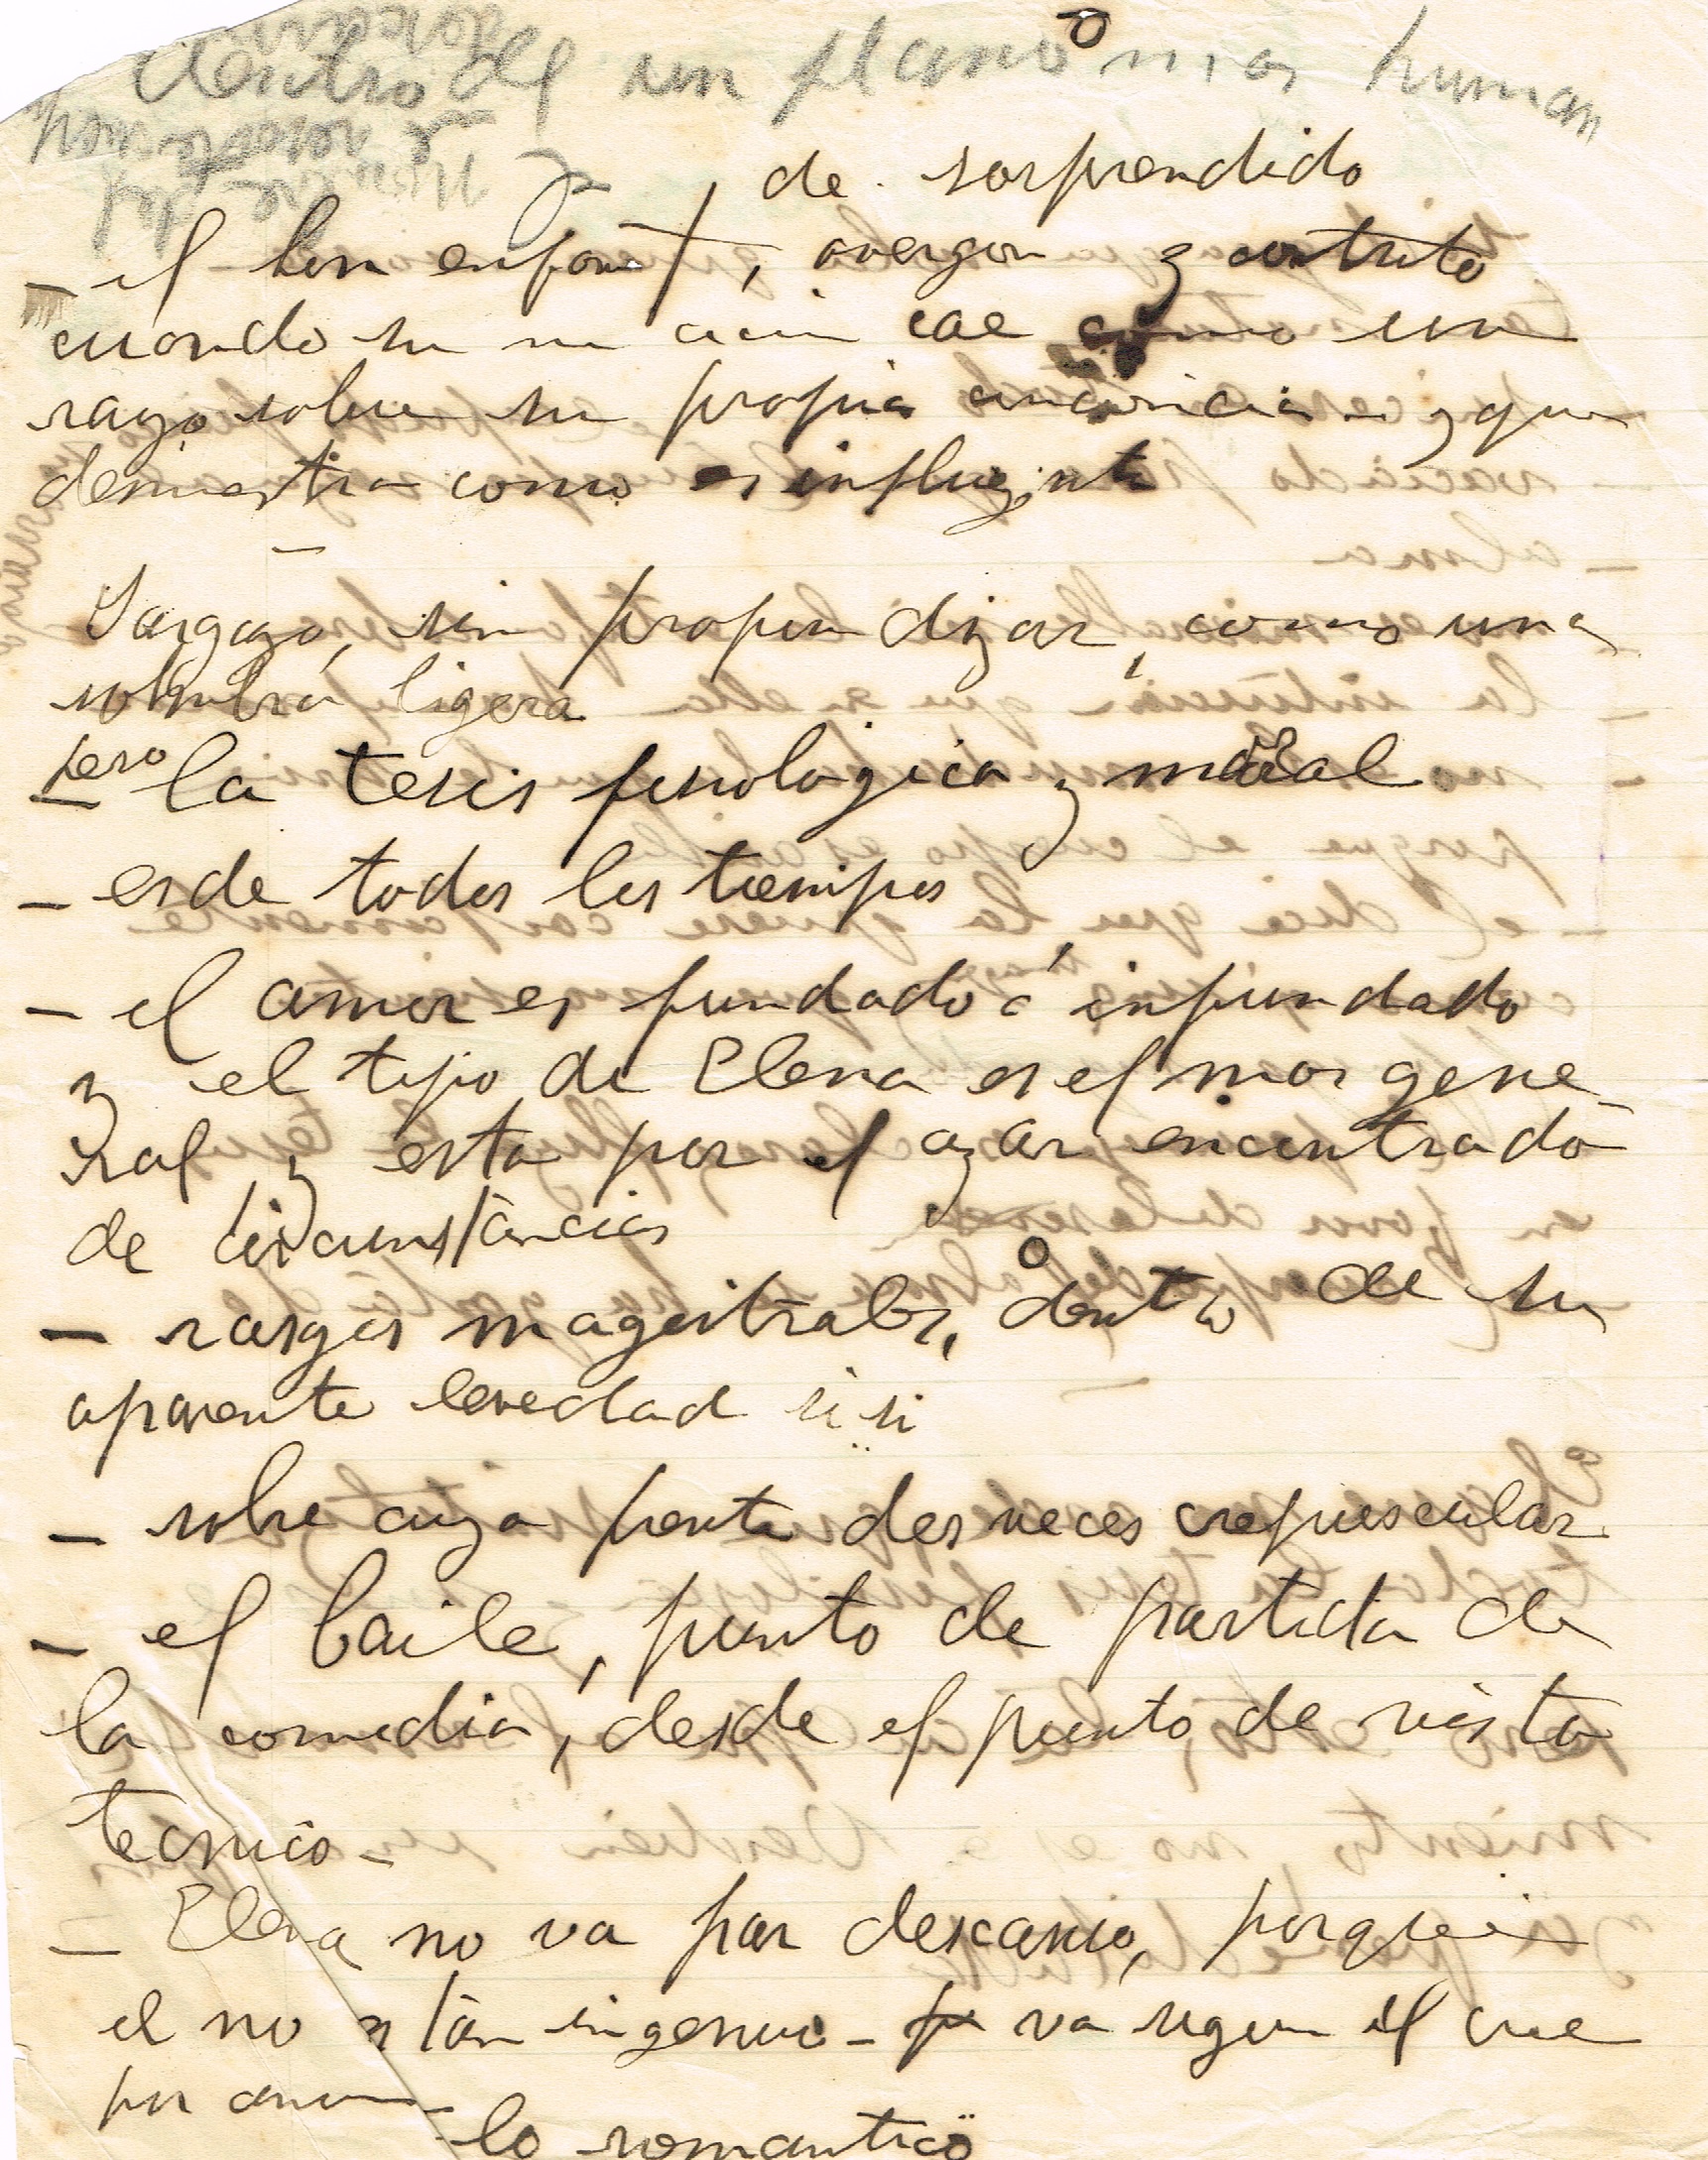 dentro de un plano mas human
de sorprendido
- el bon enfant, avergon y contrito
cuando su cae como un
rayo sobre su propia conciencia - y que
demuestra como es
sin profundizar, como una
sombra ligera
pero
- la tesis fisiologica y moral
- es de todos los tiempos
- el amor es fundado ó infundado
y el tipo de Elena es el mas gene-
ral, y esta por el azar encontrado
de circunstancias
- rasgos magistrales, dentro de su
aparente levedad si si
- sobre cuya frente des veces crepuscular
- el baile, punto de partida de
la comedia, desde el punto de vista
tecnico -
- Elena no va por descanso, porque
el no es tan ingenuo - va segun el cree
por amor -
- lo romantico